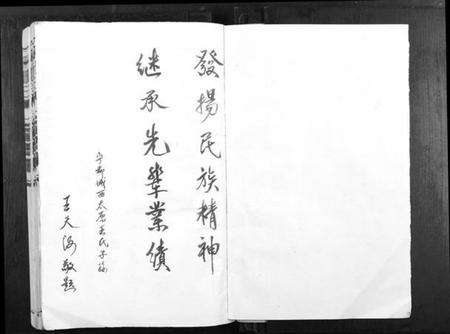 發揚民族精神
继承先輩業績
宁都城西太原王氏子孫
王天海敬題